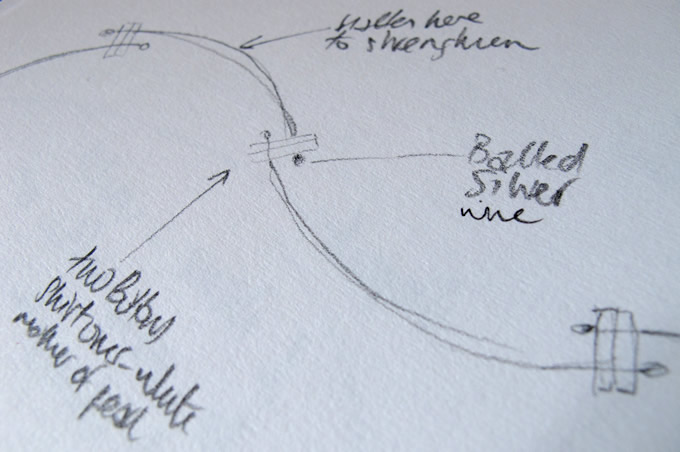 here
to strengthen
Balled
Silver
wire
two buttons
shirt ones - white
mother of pearl